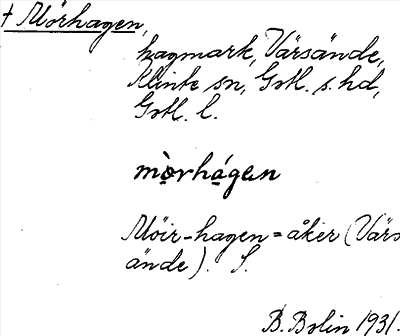 † Mörhagen,
hagmark, Värsände,
Klinte sn, Gotl. s. hd,
Gotl. l.
mò̱rhá̱gen
Möir-hagen = åker (Värs
ände). S.
B. Bolin 1931.